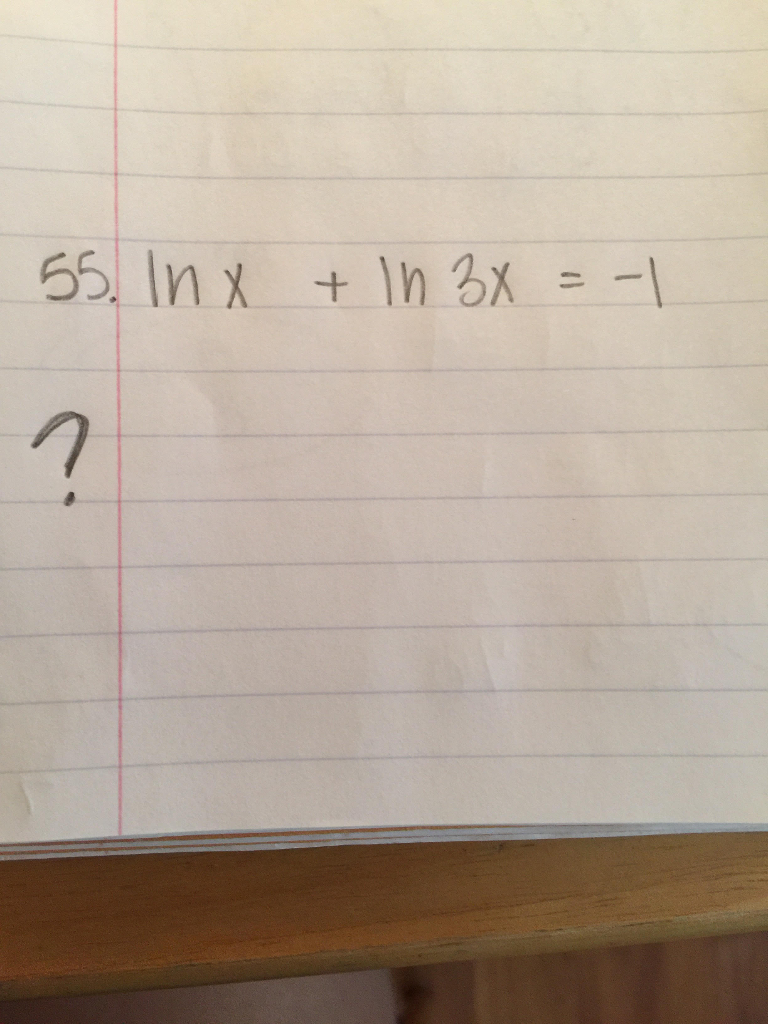 55. ln x + ln 3x = -1
?